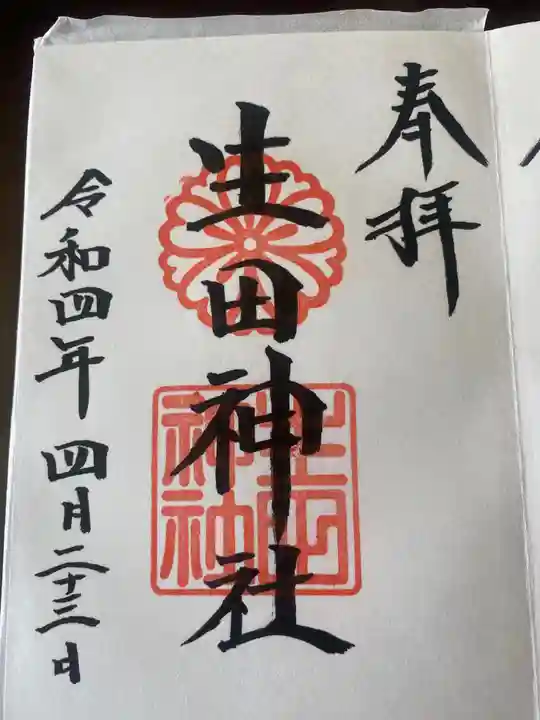 奉拝
生田神社
生田神社
令和四年 四月二十三日